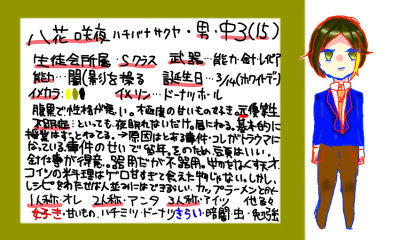 八花 咲夜 ハチバナ サクヤ・男・中3(15)
生徒会所属・Sクラス 武器…能力・針・レイピア
能力…闇(影)を操る 誕生日…3/14(ホワイトデー)
イメカラ… イメソン…ドーナツホール
腹黒で性格が悪い。極度の甘いもの好き。元優等生
不眠症といっても夜眠れないだけ。昼にねる。基本的に
授業はすっこねてる。→原因はとある事件・コレがトラウマに
なっている。事件のせいで留年。そのため、頭はいい。
針仕事が得意。器用だが不器用。中身をなくす天才
コイツの料理はゲロ甘すぎて食えた物じゃない。しかし、
レシピをわたせば人並みにはできるらしい。カップラーメンとか
1人称…オレ 2人称…アンタ 3人称…アイツ 他多々
好き…甘いもの、ハチミツ・ドーナツ きらい…暗闇・虫・勉強